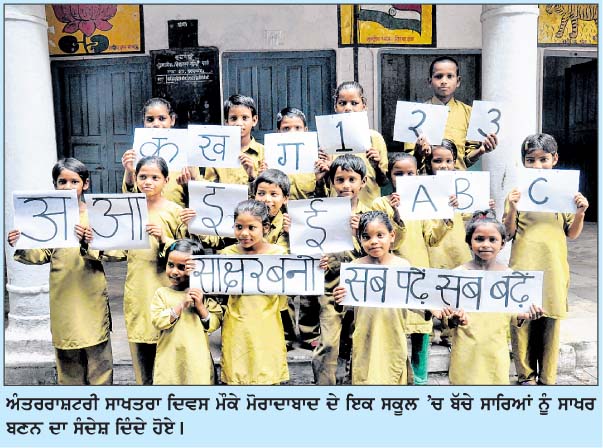 क ख ग 1 2 3
अ आ इ ई A B C
साक्षर बनो सब पढ़ें सब बढ़ें
ਅੰਤਰਰਾਸ਼ਟਰੀ ਸਾਖਤਰਾ ਦਿਵਸ ਮੌਕੇ ਮੋਰਾਦਾਬਾਦ ਦੇ ਇਕ ਸਕੂਲ ’ਚ ਬੱਚੇ ਸਾਰਿਆਂ ਨੂੰ ਸਾਖਰ
ਬਣਨ ਦਾ ਸੰਦੇਸ਼ ਦਿੰਦੇ ਹੋਏ।